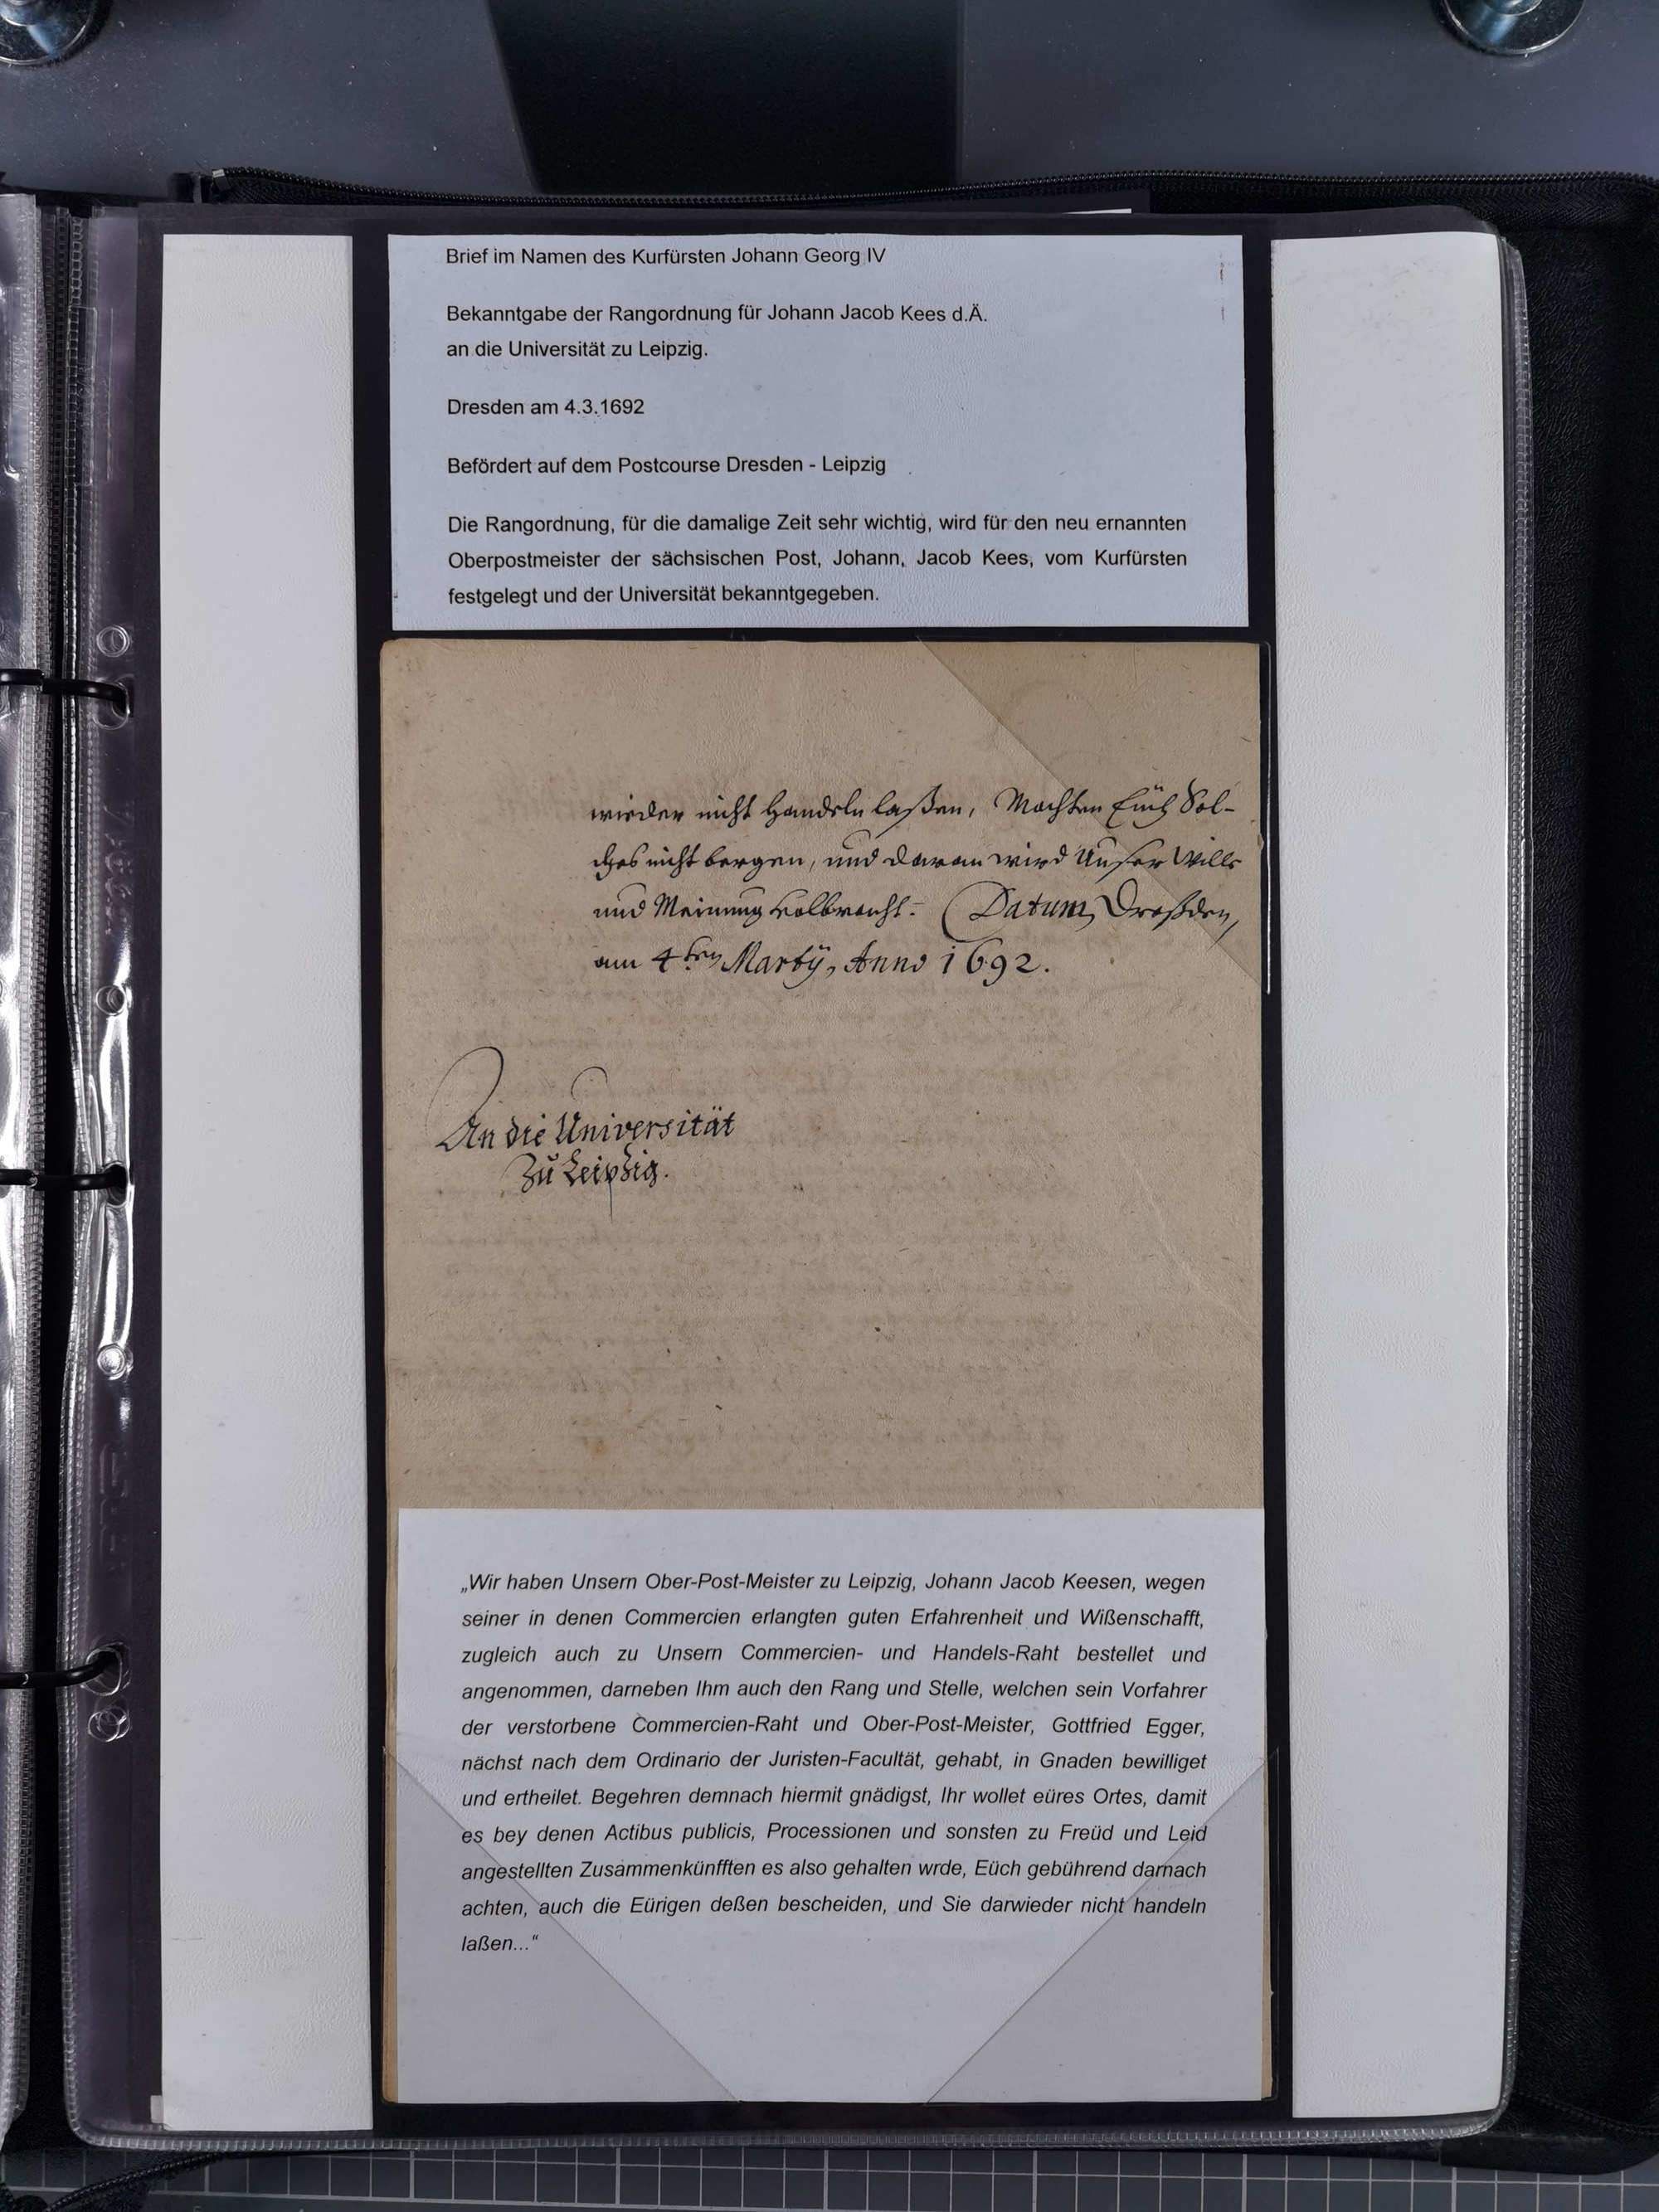 Brief im Namen des Kurfürsten Johann Georg IV
Bekanntgabe der Rangordnung für Johann Jacob Kees d.Ä.
an die Universität zu Leipzig.
Dresden am 4.3.1692
Befördert auf dem Postcourse Dresden - Leipzig
Die Rangordnung, für die damalige Zeit sehr wichtig, wird für den neu ernannten
Oberpostmeister der sächsischen Post, Johann, Jacob Kees, vom Kurfürsten
festgelegt und der Universität bekanntgegeben.
wieder nicht handeln laßen, Mochten Eüch Sol-
ches nicht bergen, und daran wird Unser Wille
und Meinung volbracht. Datum Dreßden,
am 4ten Martÿ, Anno 1692.
An die Universität
Zu Leipzig.
„Wir haben Unsern Ober-Post-Meister zu Leipzig, Johann Jacob Keesen, wegen
seiner in denen Commercien erlangten guten Erfahrenheit und Wißenschafft,
zugleich auch zu Unsern Commercien- und Handels-Raht bestellet und
angenommen, darneben Ihm auch den Rang und Stelle, welchen sein Vorfahrer
der verstorbene Commercien-Raht und Ober-Post-Meister, Gottfried Egger,
nächst nach dem Ordinario der Juristen-Facultät, gehabt, in Gnaden bewilliget
und ertheilet. Begehren demnach hiermit gnädigst, Ihr wollet eüres Ortes, damit
es bey denen Actibus publicis, Processionen und sonsten zu Freüd und Leid
angestellten Zusammenkünfften es also gehalten wrde, Eüch gebührend darnach
achten, auch die Eürigen deßen bescheiden, und Sie darwieder nicht handeln
laßen...“